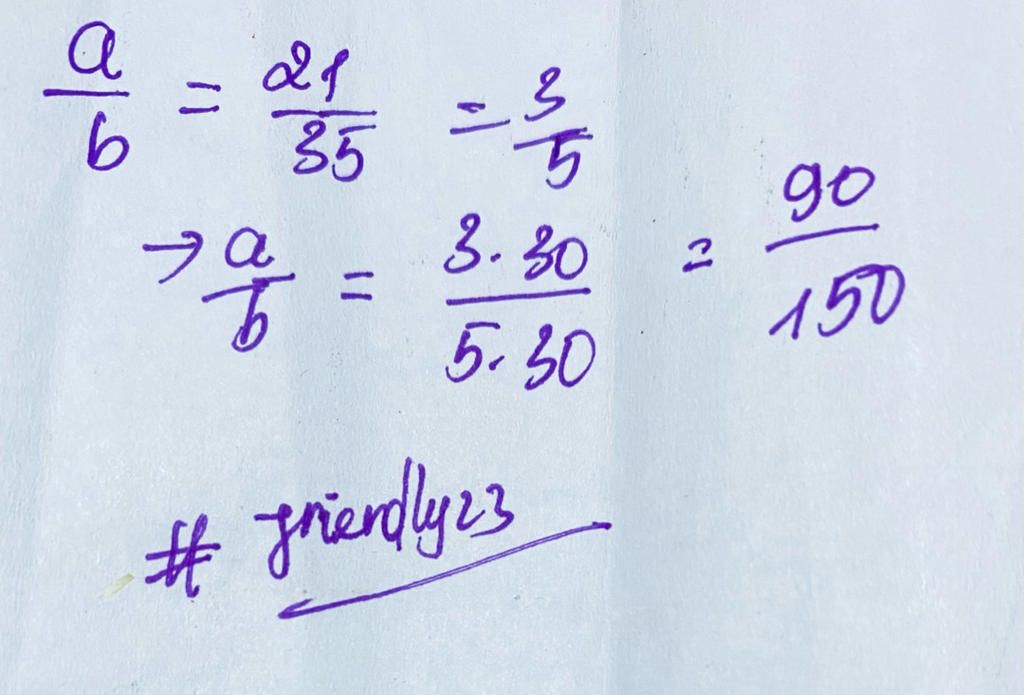 a/b = 21/35 = 3/5
→ a/b = 3.30/5.30 = 90/150
# friendly23